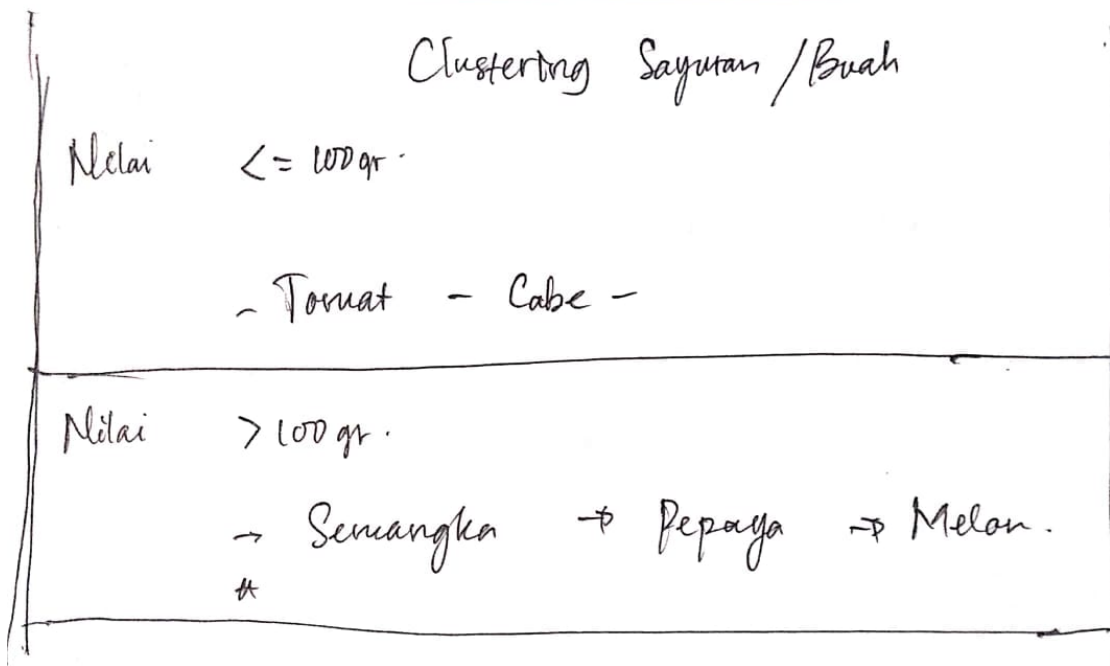 Clustering Sayuran / Buah
Nilai <= 100 gr.
- Tomat - Cabe -
Nilai > 100 gr.
→ Semangka → Pepaya → Melon.